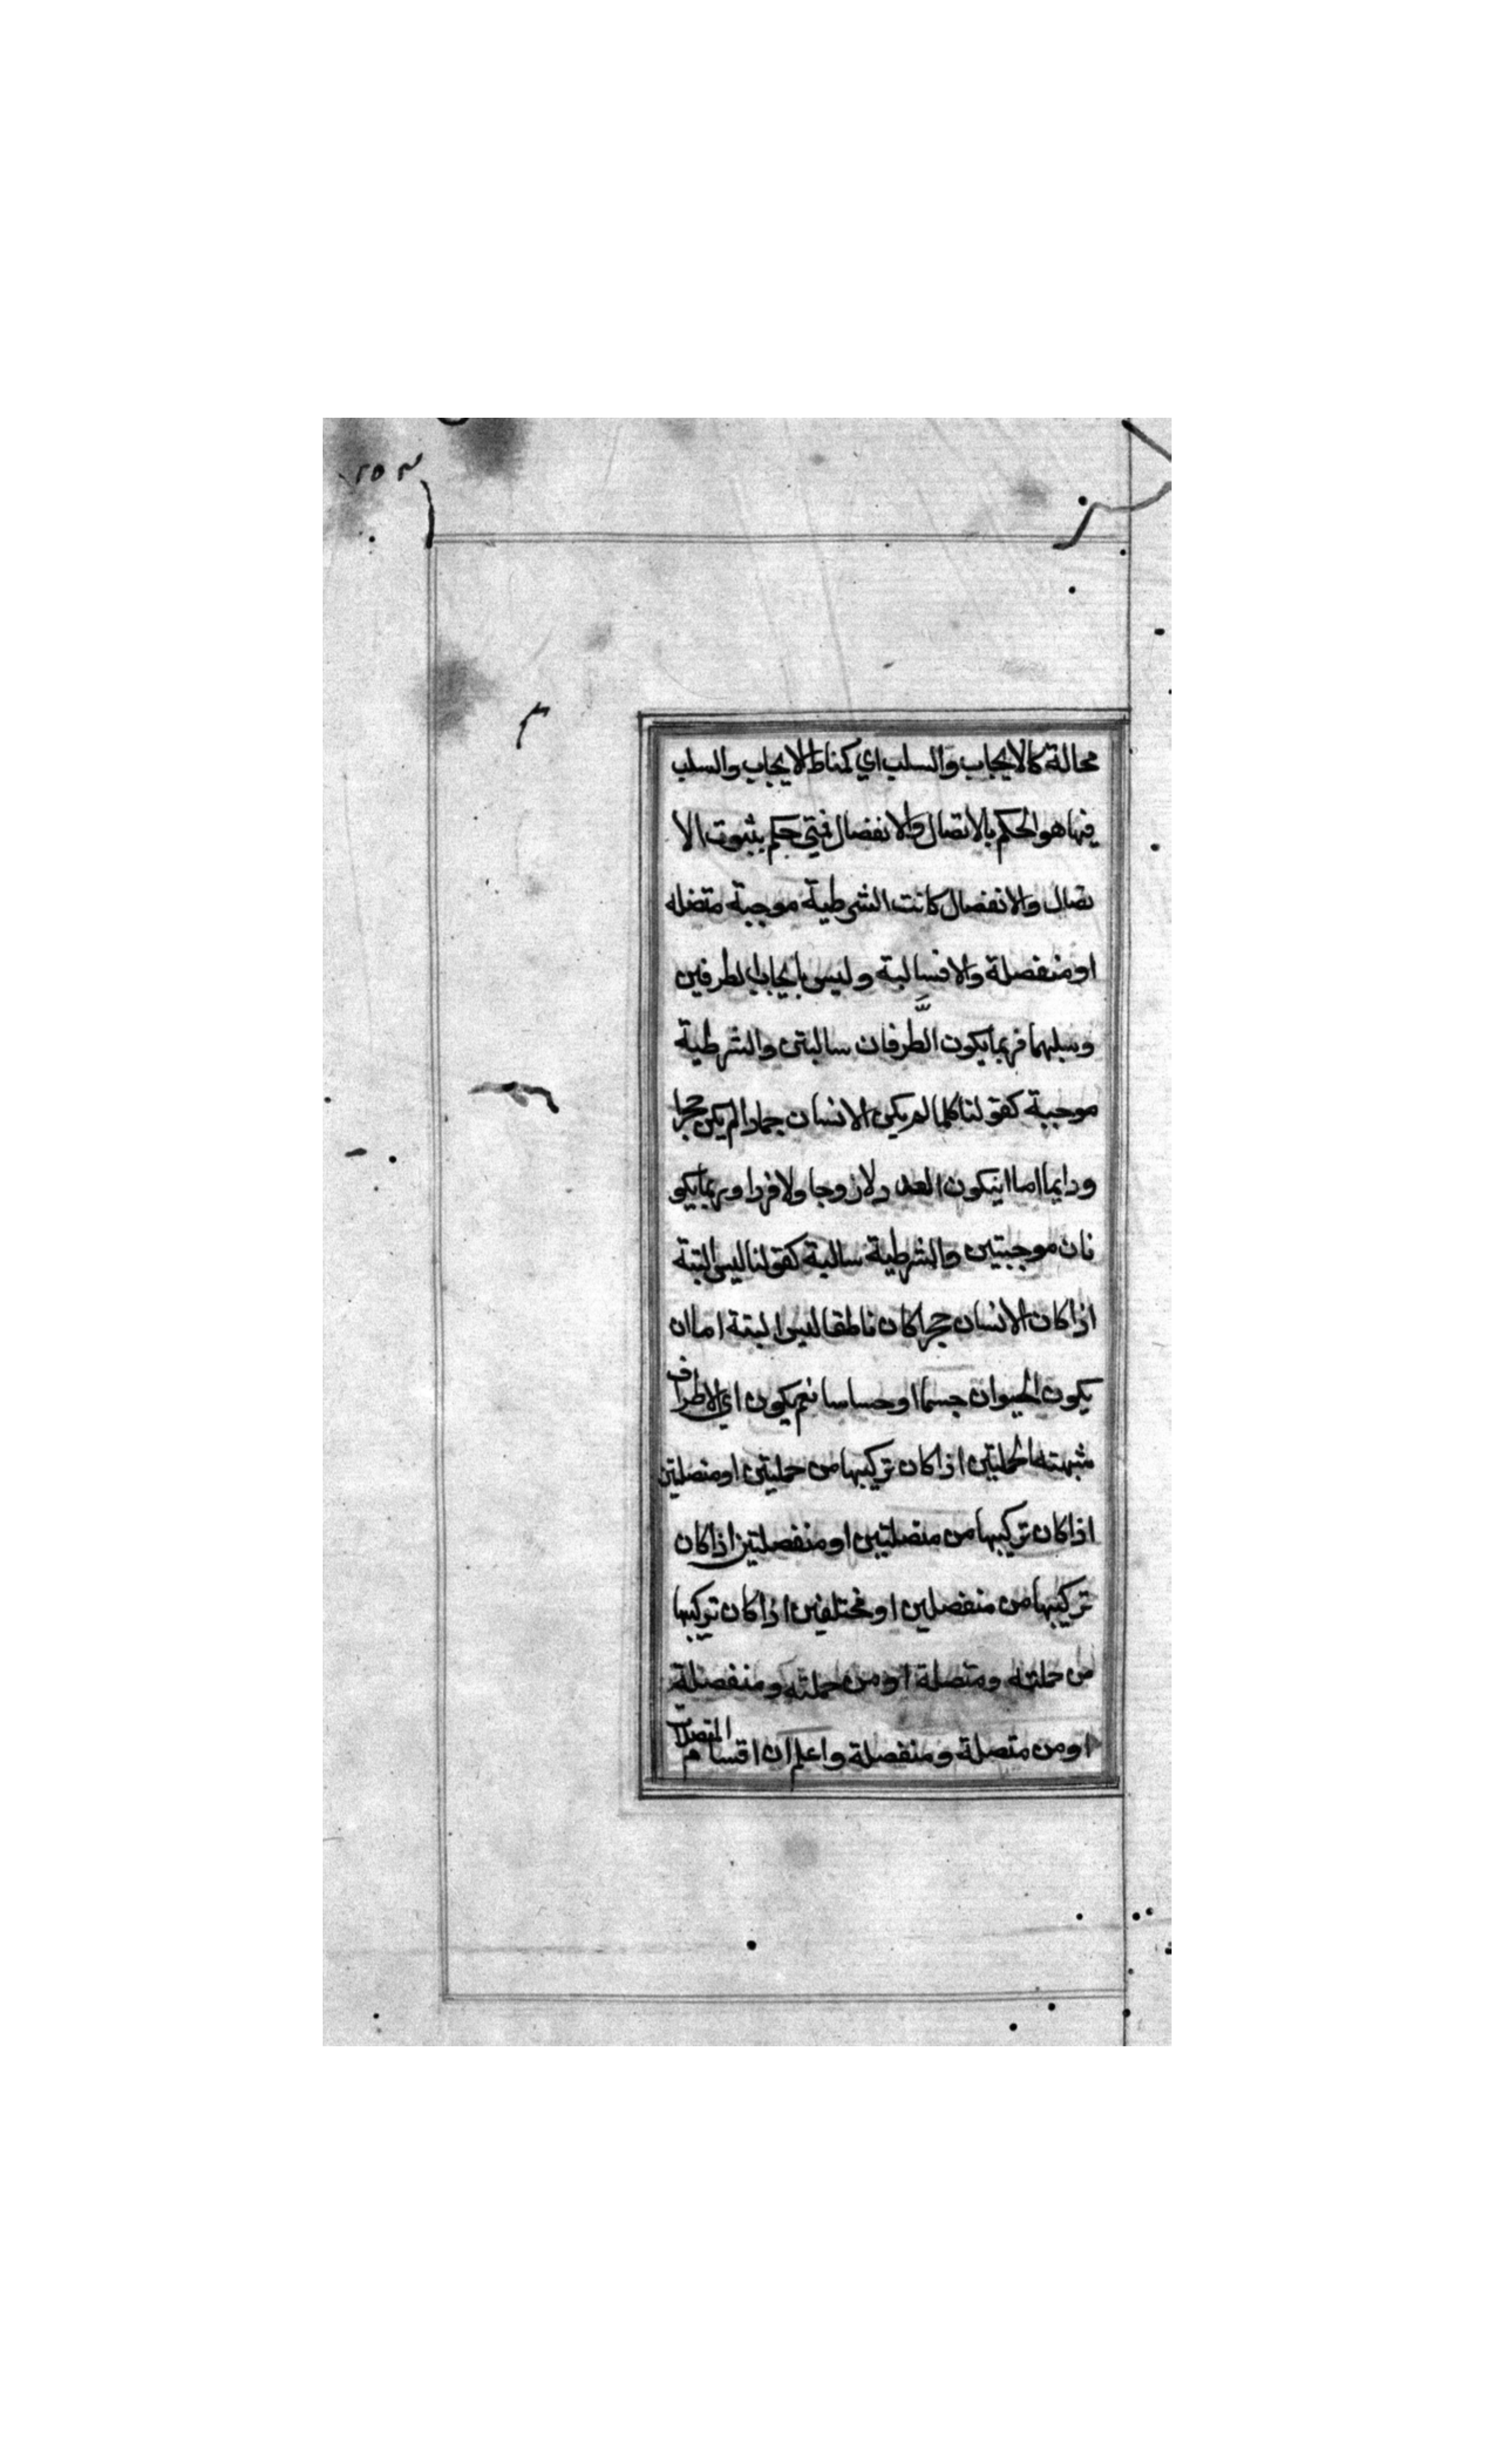 محالة كالايجاب والسلب اي كمناط الايجاب والسلب
فيها هو الحكم بالاتصال والانفصال فمتى حكم بثبوت الا
تصال والانفصال كانت الشرطية موجبة متصله
او منفصلة والا فسالبة وليس بايجاب الطرفين
وسلبهما فربما يكون الطرفان سالبتين والشرطية
موجبة كقولنا كلما لم يكن الانسان جمادا لم يكن حجرا
ودايما اما ان يكون العدد لا زوجا ولا فردا وربما يكو
نان موجبتين والشرطية سالبة كقولنا ليس البتة
اذا كان الانسان حجرا كان ناطقا ليس البتة اما ان
يكون الحيوان جسما او حساسا نعم يكون اي الاطراف
شبهته الحمليتين اذا كان تركيبها من حمليتين او متصليتن
اذا كان تركيبها من متصلتين او منفصلتين اذا كان
تركيبها من منفصلين او مختلفين اذا كان تركيبها
من حمليته ومتصلة او من حمليته ومنفصلة
او من متصلة ومنفصلة واعلم ان اقسام المتصلات